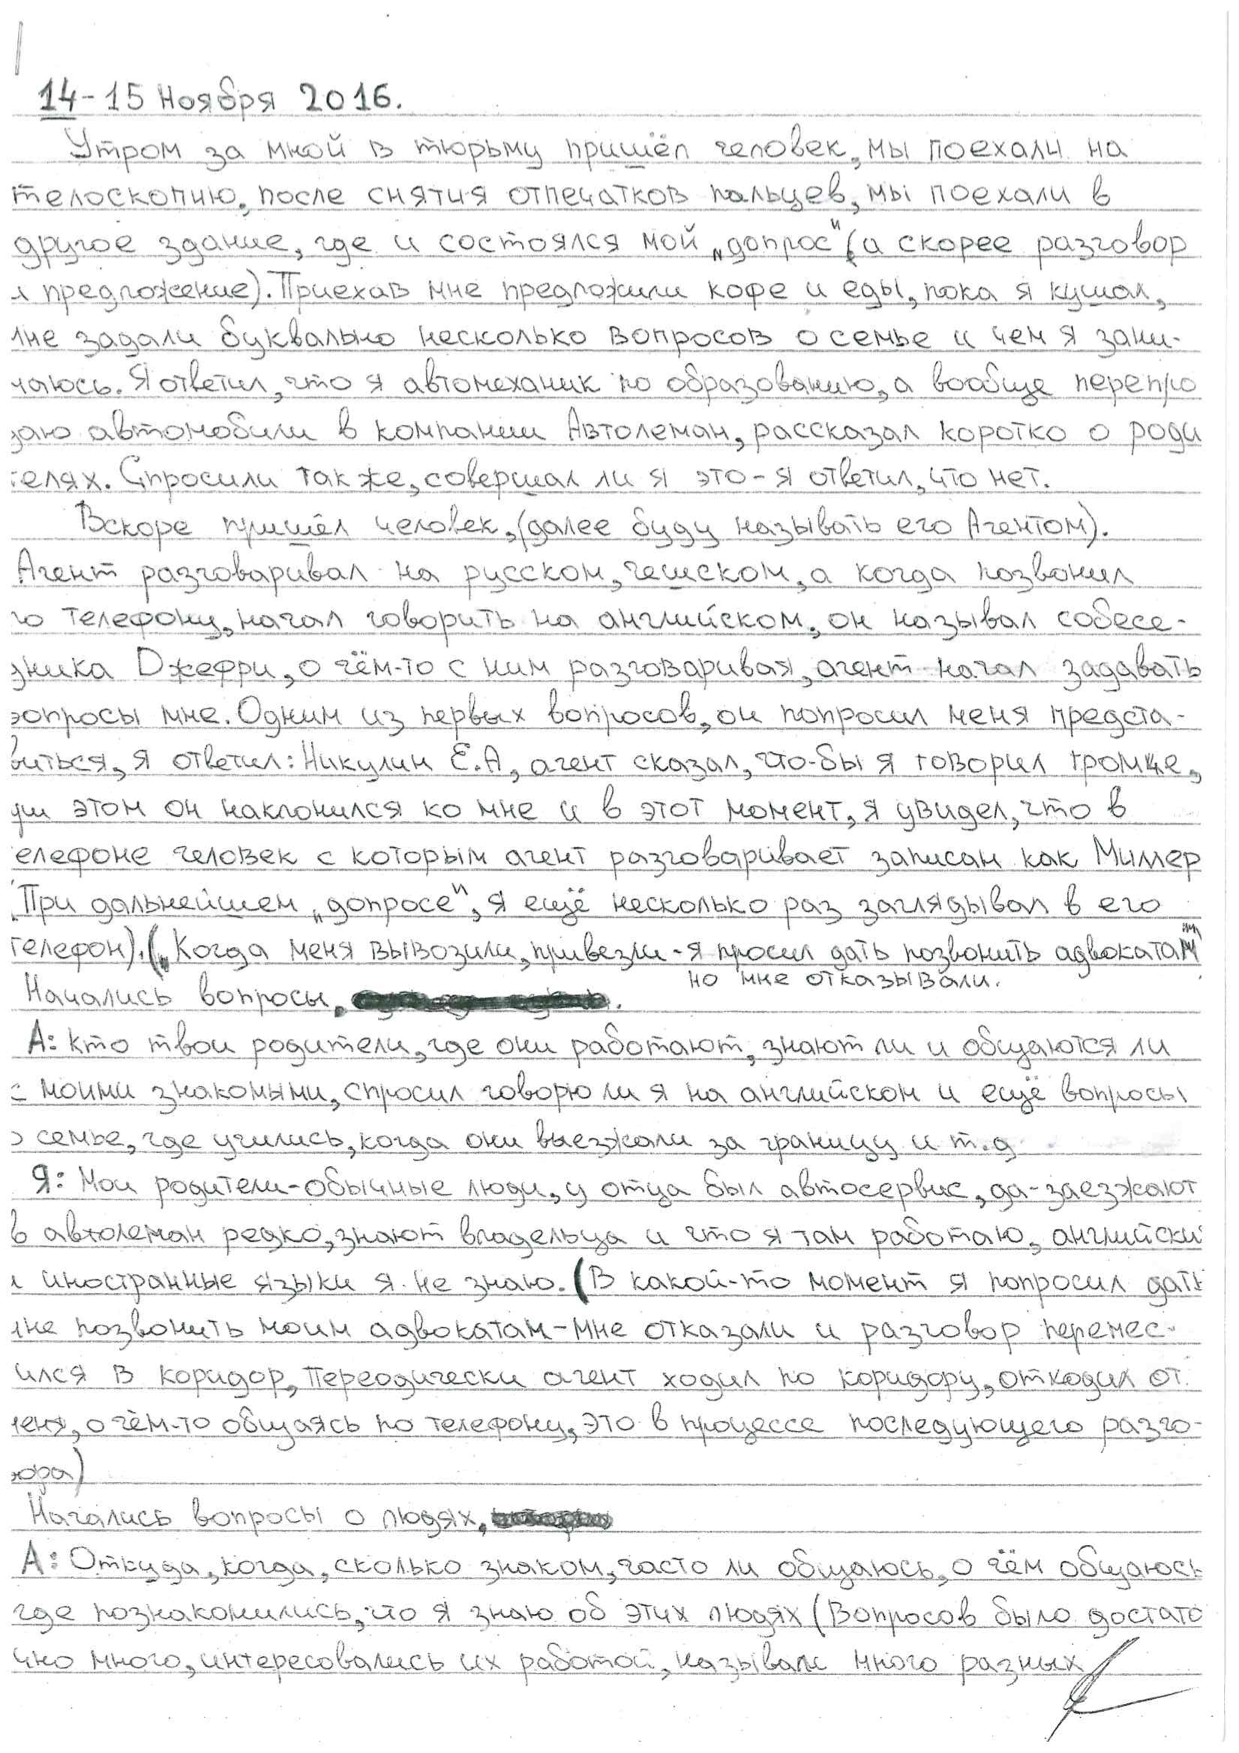 14-15 Ноября 2016.
Утром за мной в тюрьму пришёл человек, мы поехали на
телоскопию, после снятия отпечатков пальцев, мы поехали в
другое здание, где и состоялся мой „допрос" (а скорее разговор
и предложение). Приехав мне предложили кофе и еды, пока я кушал,
мне задали буквально несколько вопросов о семье и чем я зани-
маюсь. Я ответил, что я автомеханик по образованию, а вообще перепро
даю автомобили в компании Автолеман, рассказал коротко о роди
телях. Спросили так же, совершал ли я это - я ответил, что нет.
Вскоре пришёл человек, (далее буду называть его Агентом).
Агент разговаривал на русском, чешском, а когда позвонил
по телефону, начал говорить на английском, он называл собесе-
дника Джефри, о чём-то с ним разговаривая, агент начал задавать
вопросы мне. Одним из первых вопросов, он попросил меня предста-
виться, я ответил: Никулин Е.А, агент сказал, что-бы я говорил громче,
при этом он наклонился ко мне и в этот момент, я увидел, что в
телефоне человек с которым агент разговаривает записан как Миллер
(При дальнейшем „допросе", я ещё несколько раз заглядывал в его
телефон). („Когда меня вывозили, привезли - я просил дать позвонить адвокатам"
но мне отказывали.
Начались вопросы.
А: Кто твои родители, где они работают, знают ли и общаются ли
с моими знакомыми, спросил говорю ли я на английском и ещё вопросы
о семье, где учились, когда они выезжали за границу и т.д
Я: Мои родители - обычные люди, у отца был автосервис, да - заезжают
в автолеман редко, знают владельца и что я там работаю, английски
и иностранные языки я не знаю. (В какой-то момент я попросил дать
мне позвонить моим адвокатам - мне отказали и разговор перемес-
тился в коридор, переодически агент ходил по коридору, отходил от
меня, о чём-то общаясь по телефону, это в процессе последующего разго-
вора)
Начались вопросы о людях,
А: Откуда, когда, сколько знаком, часто ли общаюсь, о чём общаюсь
где познакомились, что я знаю об этих людях (Вопросов было достато
чно много, интересовались их работой, называл много разных